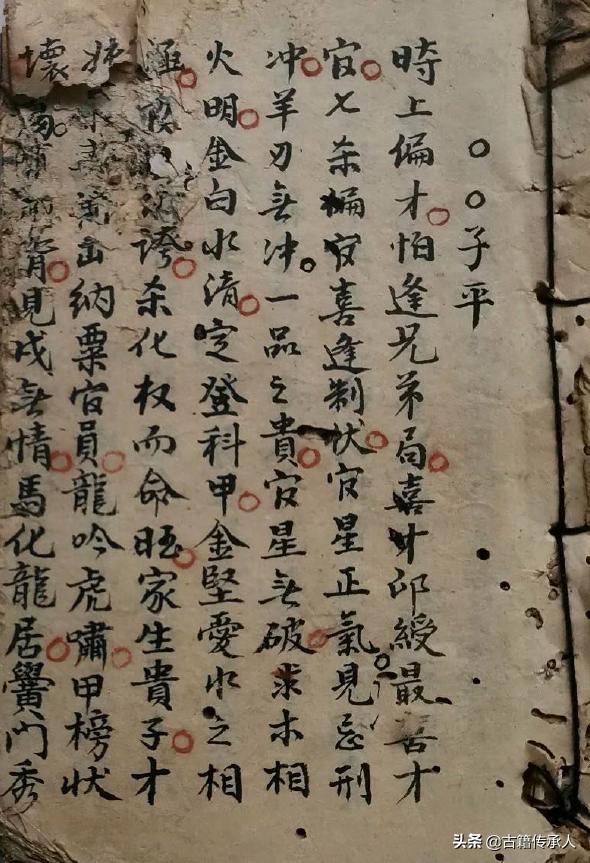 子平
時上偏才怕逢兄弟局喜才印綬最 才
官七杀偏官喜逢制伏官星正氣見忌刑
冲羊刃無冲一品之貴官星無破求木相
火明金白水清定登科甲金堅愛水之相
誇杀化权而命旺家生貴子才
出納粟官員龍吟虎嘯甲榜状
壞 見戌無情馬化龍居黌门秀
头条 @古籍传承人